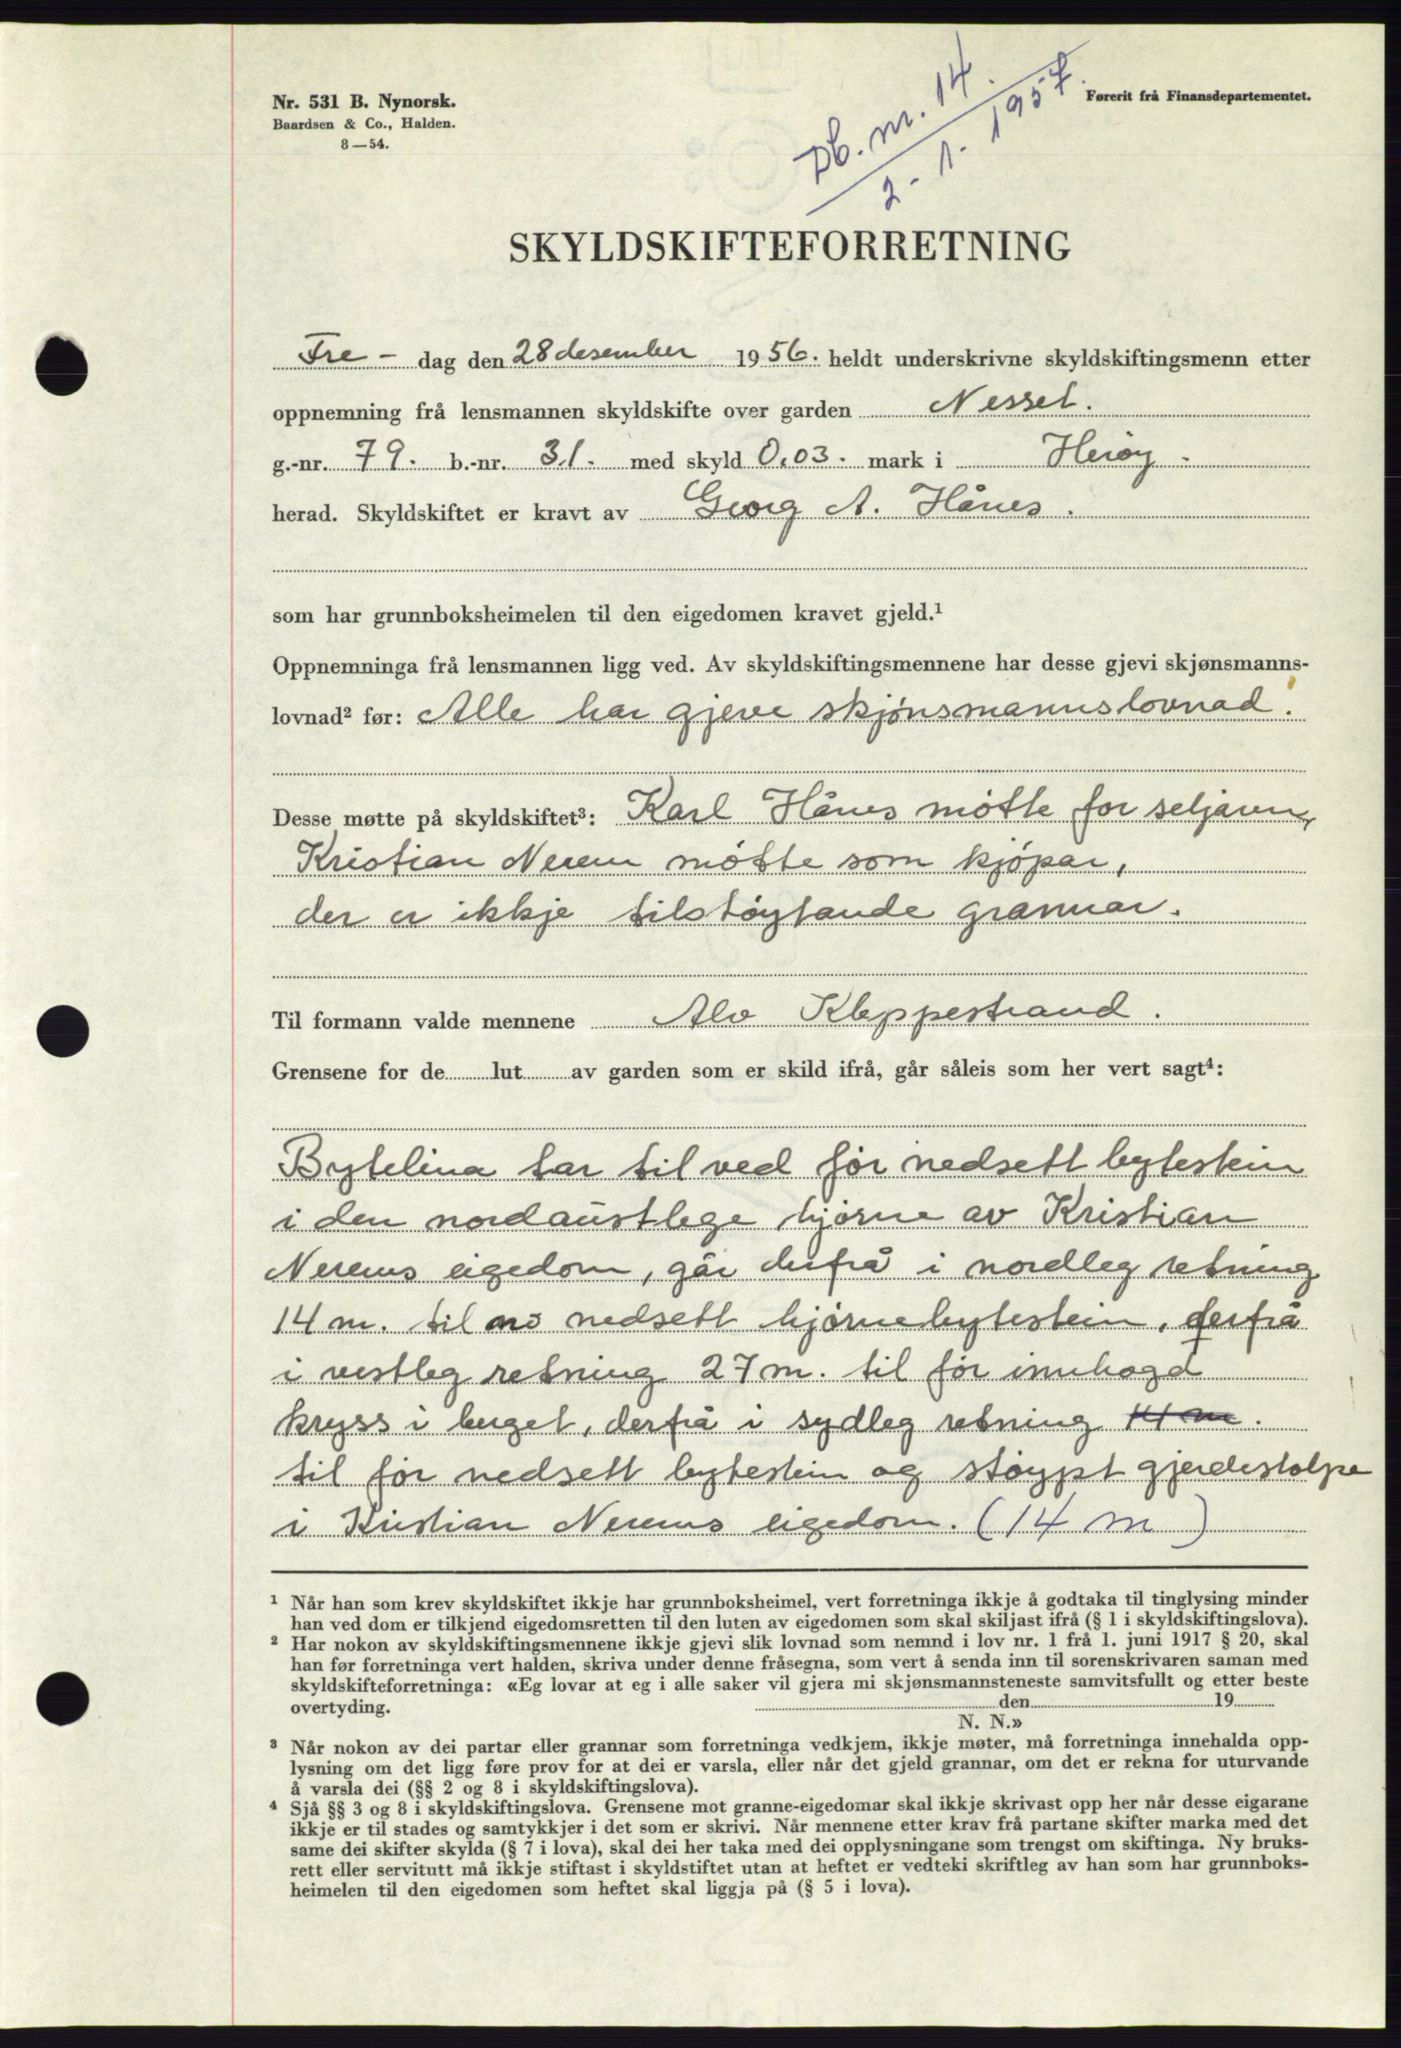 Nr. 531 B. Nynorsk.
Baardsen & Co., Halden.
8—54.
Db. nr. 14.
2-1-1957.
Førerit frå Finansdepartementet.
SKYLDSKIFTEFORRETNING
Fre- dag den 28 desember 1956. heldt underskrivne skyldskiftingsmenn etter
oppnemning frå lensmannen skyldskifte over garden Nesset.
g.-nr. 79. b.-nr. 31. med skyld 0,03. mark i Herøy.
herad. Skyldskiftet er kravt av Georg A. Hånes.
som har grunnboksheimelen til den eigedomen kravet gjeld.¹
Oppnemninga frå lensmannen ligg ved. Av skyldskiftingsmennene har desse gjevi skjønsmanns-
lovnad² før: Alle har gjeve skjönsmannslovnad.
Desse møtte på skyldskiftet³: Karl Hånes mötte for seljaren,
Kristian Nerem mötte som kjöpar,
der er ikkje tilstöytande grannar.
Til formann valde mennene Alv Kleppestrand.
Grensene for de lut av garden som er skild ifrå, går såleis som her vert sagt⁴:
Bytelina tar til ved för nedsett bytestein
i den nordaustlege hjörne av Kristian
Nerems eigedom, går derfrå i nordleg retning
14 m. til no nedsett hjörnebytestein, derfrå
i vestleg retning 27 m. til för innhogd
kryss i berget, derfrå i sydleg retning 14 m.
til för nedsett bytestein og stöypt gjerdestolpe
i Kristian Nerems eigedom. (14 m)
¹ Når han som krev skyldskiftet ikkje har grunnboksheimel, vert forretninga ikkje å godtaka til tinglysing minder
han ved dom er tilkjend eigedomsretten til den luten av eigedomen som skal skiljast ifrå (§ 1 i skyldskiftingslova).
² Har nokon av skyldskiftingsmennene ikkje gjevi slik lovnad som nemnd i lov nr. 1 frå 1. juni 1917 § 20, skal
han før forretninga vert halden, skriva under denne fråsegna, som vert å senda inn til sorenskrivaren saman med
skyldskifteforretninga: «Eg lovar at eg i alle saker vil gjera mi skjønsmannsteneste samvitsfullt og etter beste
overtyding. den 19
N. N.»
³ Når nokon av dei partar eller grannar som forretninga vedkjem, ikkje møter, må forretninga innehalda opp-
lysning om det ligg føre prov for at dei er varsla, eller når det gjeld grannar, om det er rekna for uturvande
å varsla dei (§§ 2 og 8 i skyldskiftingslova).
⁴ Sjå §§ 3 og 8 i skyldskiftingslova. Grensene mot granne-eigedomar skal ikkje skrivast opp her når desse eigarane
ikkje er til stades og samtykkjer i det som er skrivi. Når mennene etter krav frå partane skifter marka med det
same dei skifter skylda (§ 7 i lova), skal dei her taka med dei opplysningane som trengst om skiftinga. Ny bruks-
rett eller servitutt må ikkje stiftast i skyldstiftet utan at heftet er vedteki skriftleg av han som har grunnboks-
heimelen til den eigedomen som heftet skal liggja på (§ 5 i lova).